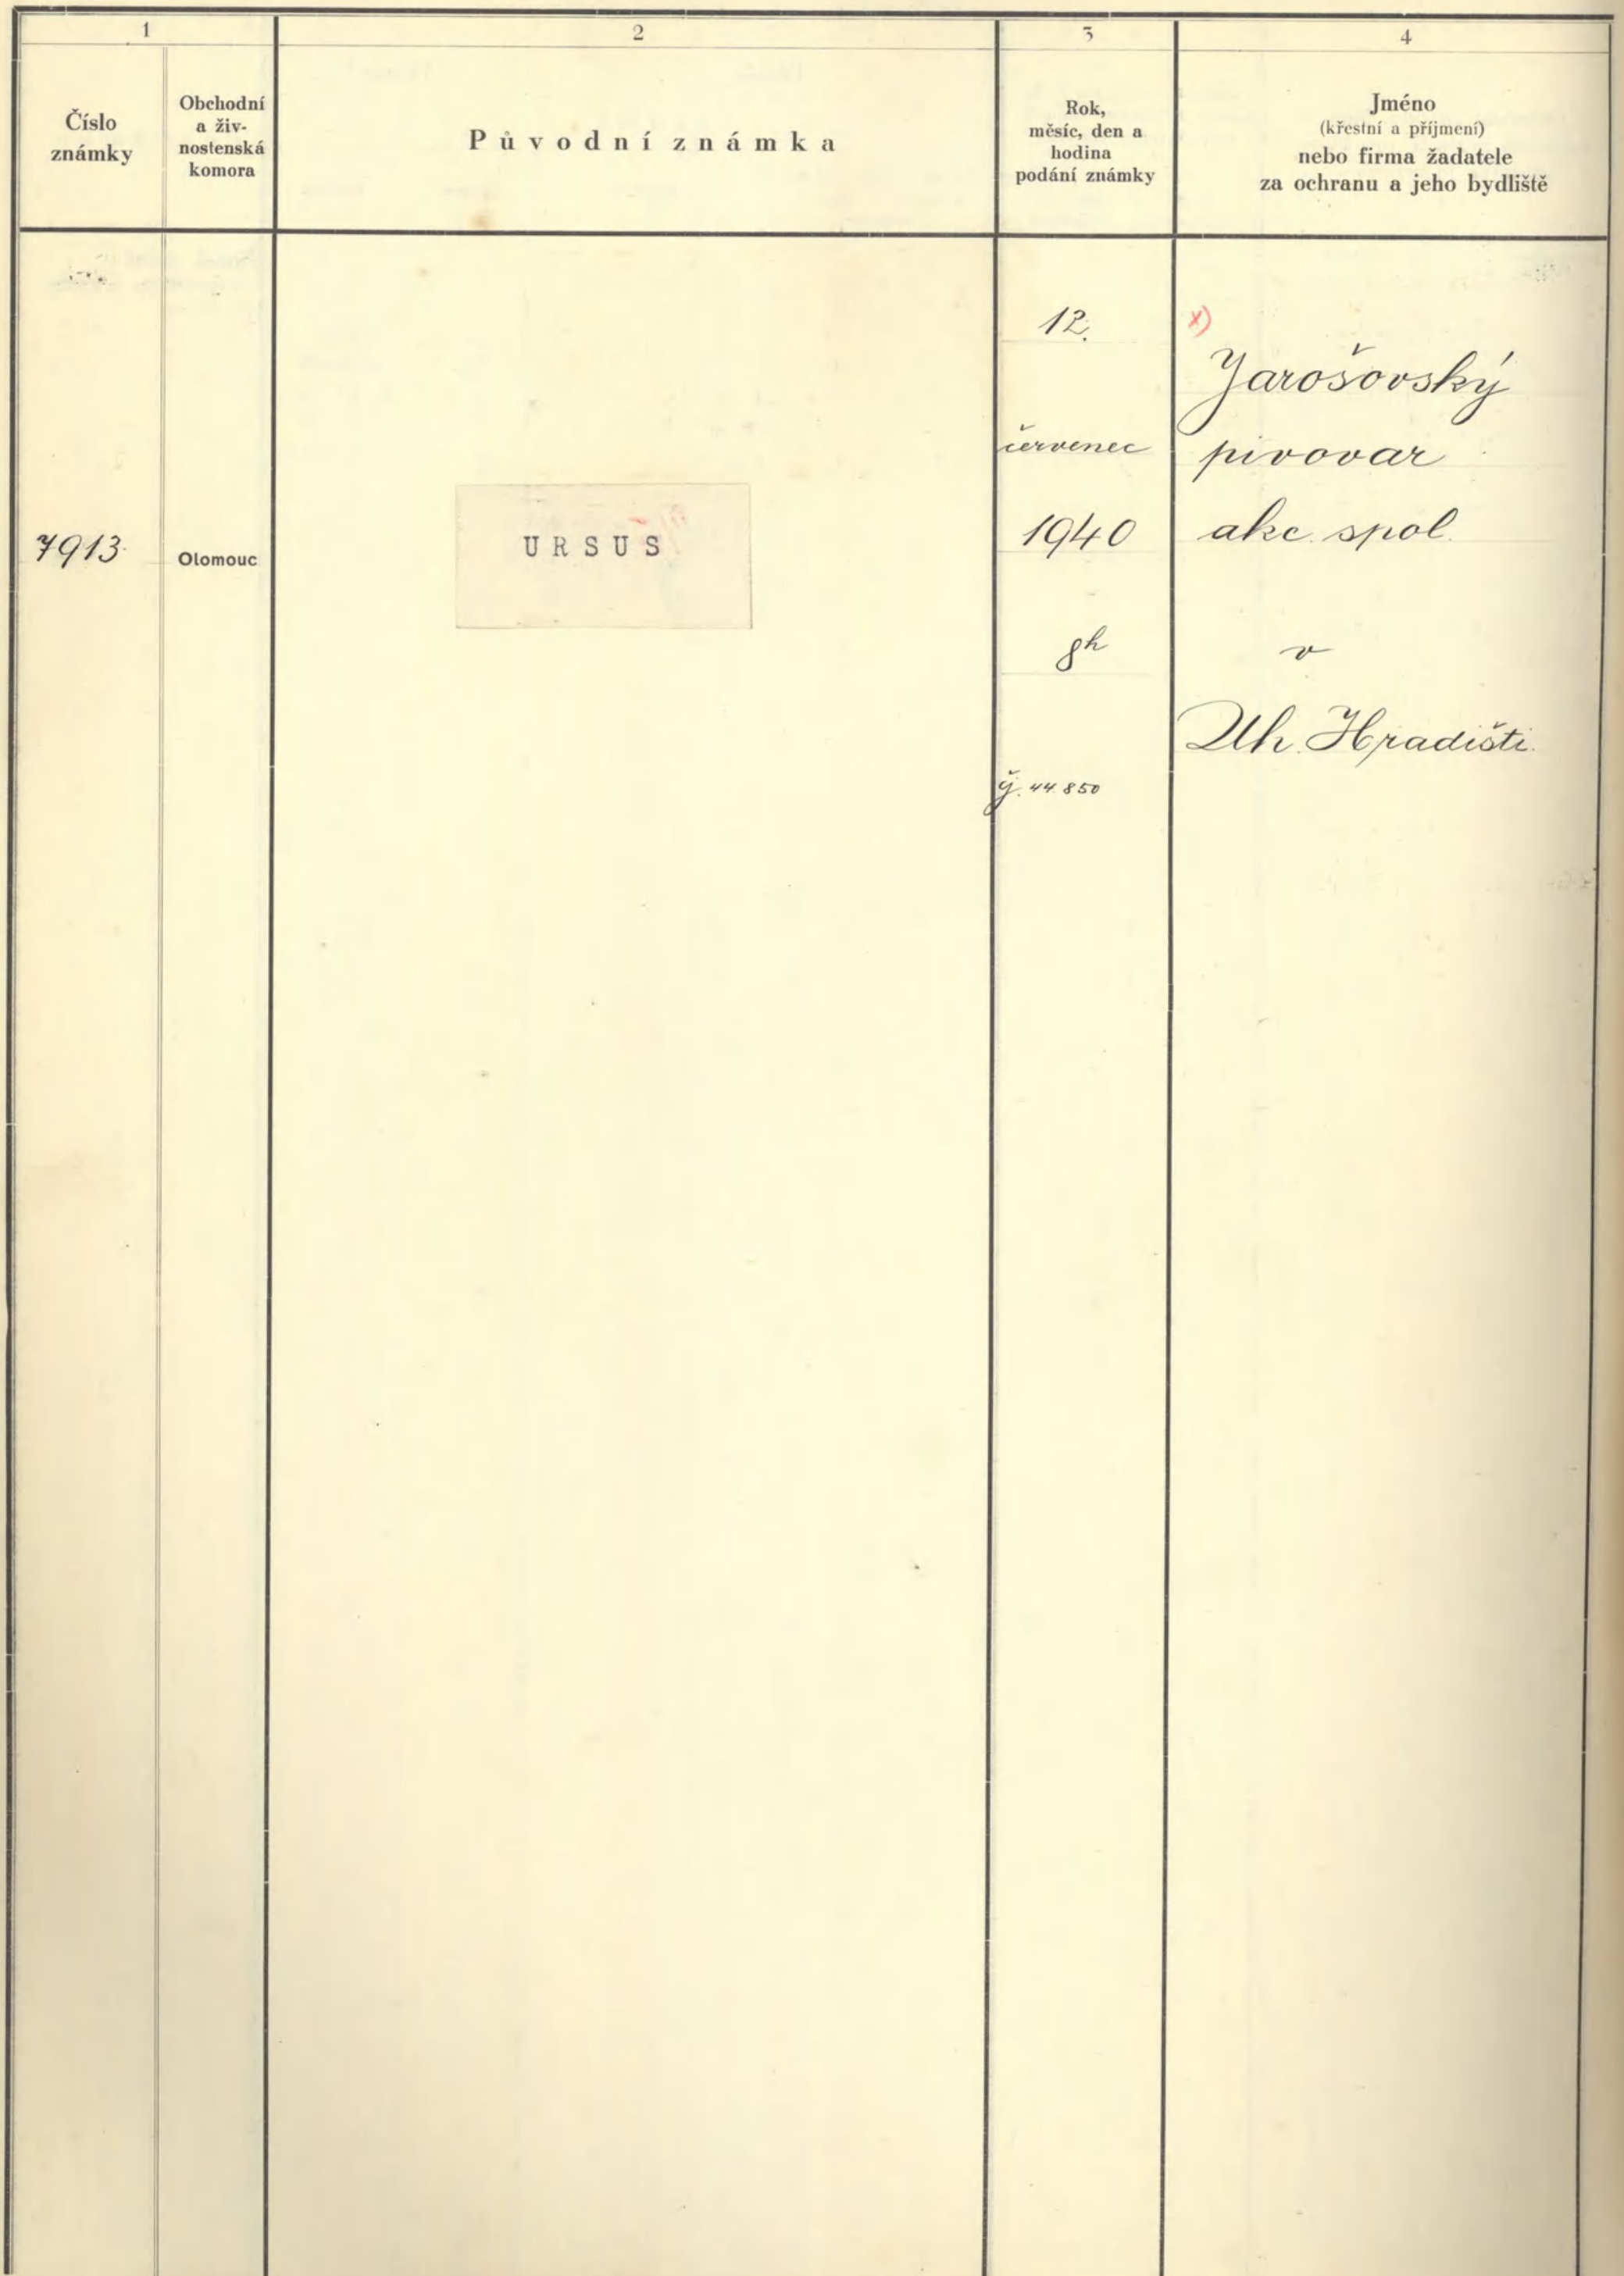 1
2
3
4
Číslo
známky
Obchodní
a živ-
nostenská
komora
Původní známka
Rok,
měsíc, den a
hodina
podání známky
Jméno
(křestní a příjmení)
nebo firma žadatele
za ochranu a jeho bydliště
7913
Olomouc
URSUS
12.
červenec
1940
8h
čj. 44.850
x)
Jarošovský
pivovar
akc. spol.
v
Uh. Hradišti.